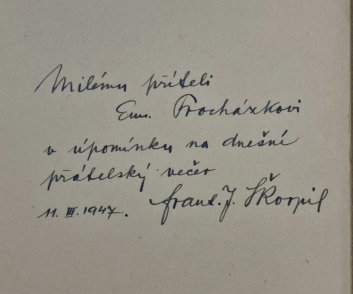 Milému příteli
Em. Procházkovi
v úpomínku na dnešní
přátelský večer
11. III. 1947. Frant. J. Škorpil